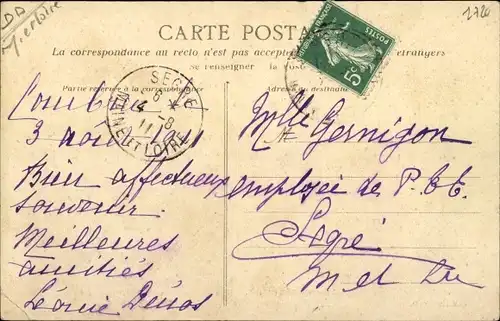 1720
CARTE POSTALE
La correspondance au recto n'est pas acceptée étrangers
Se renseigner la Poste
Partie réservée à la correspondance
Adresse du destinataire
SEGRÉ
6 *
4 - 8
11
MAINE ET LOIRE
5c
3 août 1911
Bien affectueux
souvenir.
Meilleures
amitiés
Léonie
Mlle Gernigon
employée de P. T. T.
Segré
M et L